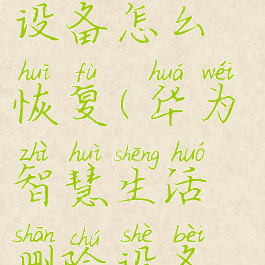 设备怎么
huī fù huá wéi
恢复(华为
zhì huì shēng huó
智慧生活
shān chú shè bèi
删除设备